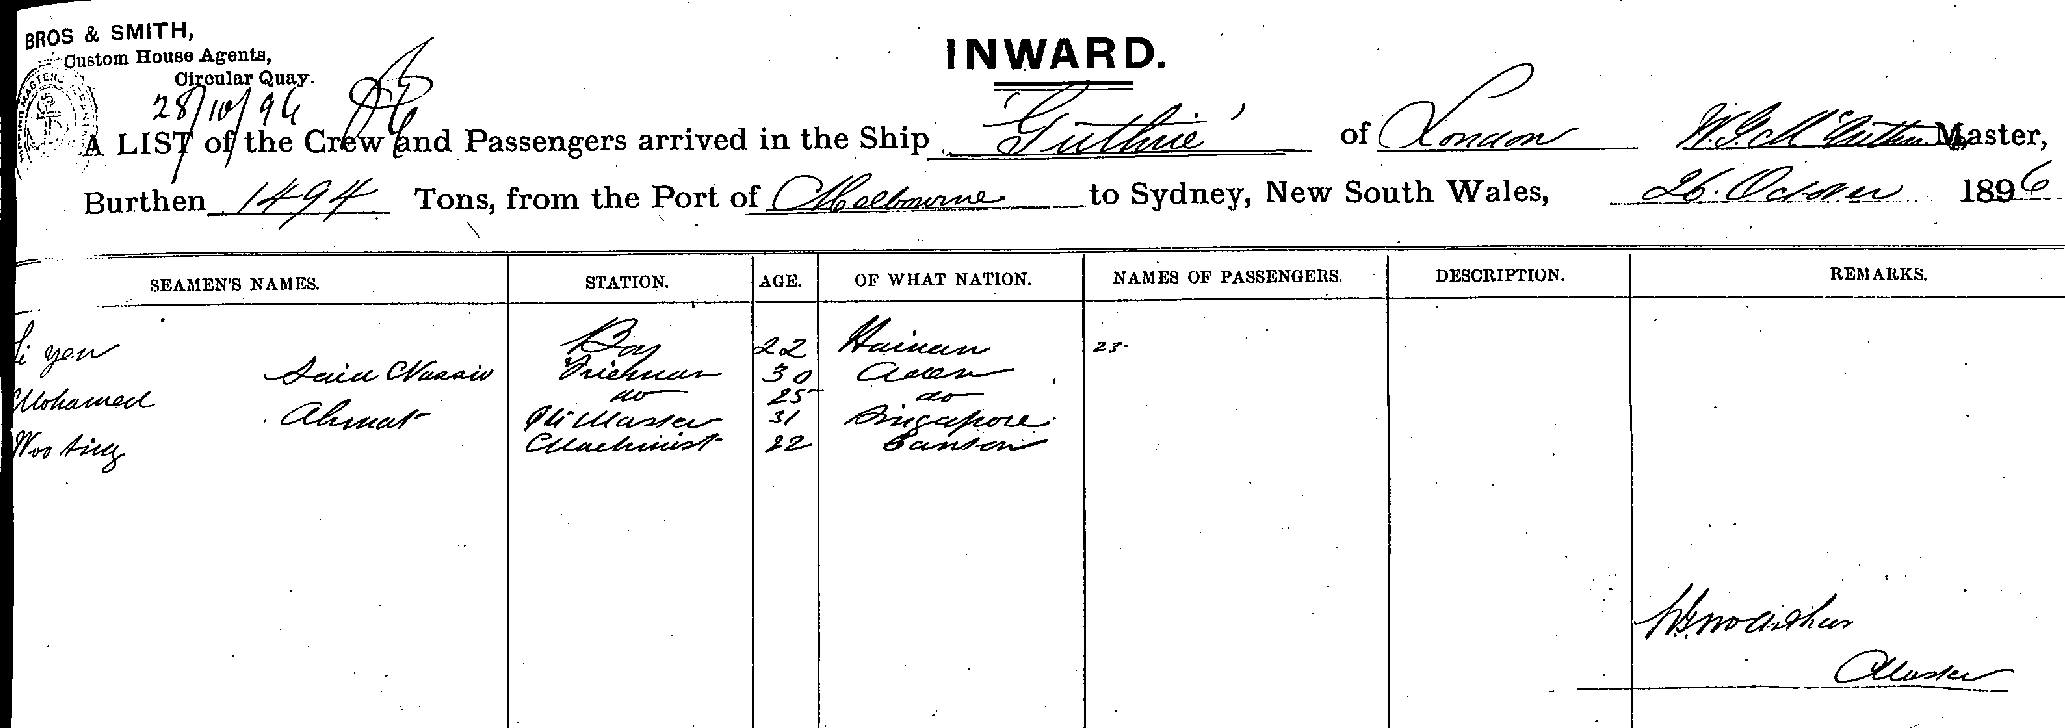 BROS & SMITH,
Custom House Agents,
Circular Quay.
28/10/96
INWARD.
A LIST of the Crew and Passengers arrived in the Ship 'Guthrie' of London W. G. McArthur Master,
Burthen 1494 Tons, from the Port of Melbourne to Sydney, New South Wales, 26. October 1896
SEAMEN'S NAMES. STATION. AGE. OF WHAT NATION. NAMES OF PASSENGERS. DESCRIPTION. REMARKS.
yen Boy 22 Hainan 23
Said Fireman 30 Aden
Mohamed do 25 do
Ahmat Master 31 Singapore
Woo Machinist 22 Canton
McArthur
Master